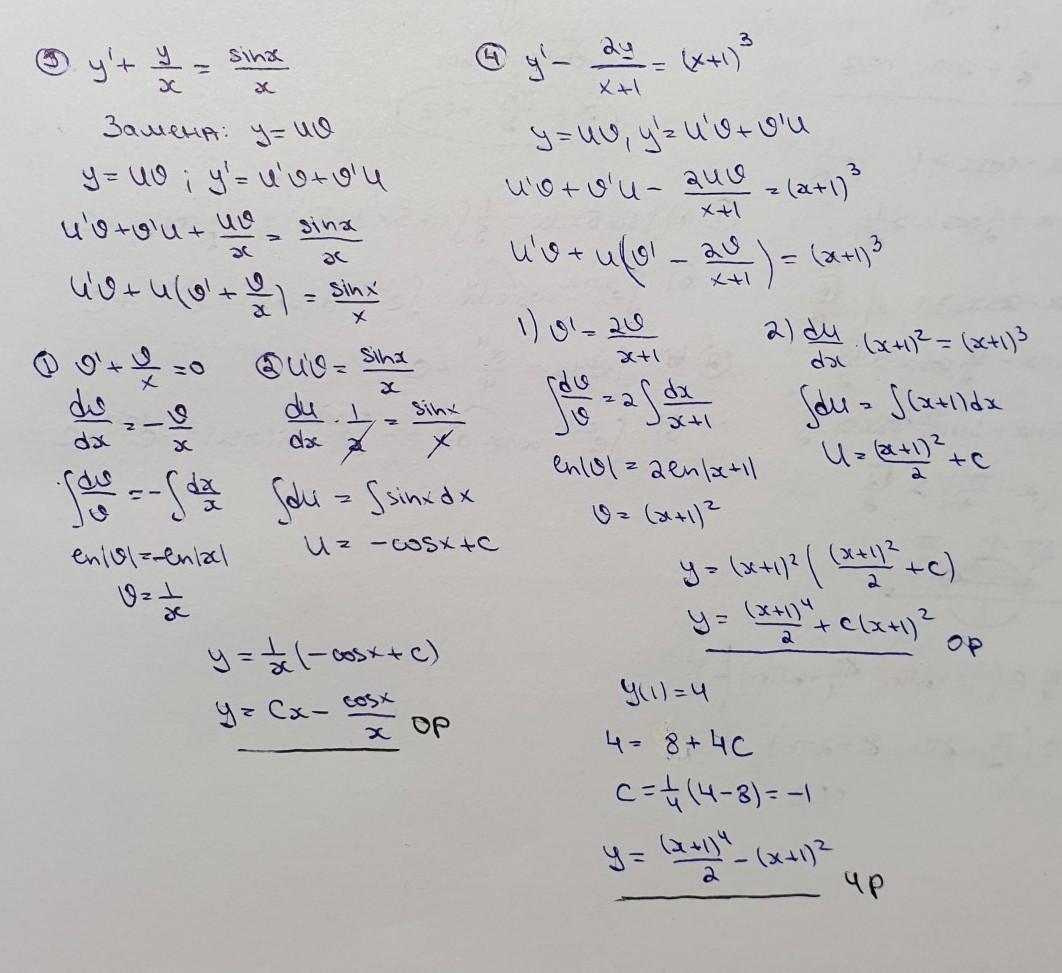 ③ y' + y/x = sinx/x
Замена: y = uv
y = uv ; y' = u'v + v'u
u'v + v'u + uv/x = sinx/x
u'v + u(v' + v/x) = sinx/x
① v' + v/x = 0
dv/dx = -v/x
∫dv/v = -∫dx/x
ln|v| = -ln|x|
v = 1/x
② u'v = sinx/x
du/dx · 1/x = sinx/x
∫du = ∫sinx dx
u = -cosx + c
y = 1/x (-cosx + c)
y = Cx - cosx/x ОР
④ y' - 2y/(x+1) = (x+1)³
y = uv, y' = u'v + v'u
u'v + v'u - 2uv/(x+1) = (x+1)³
u'v + u(v' - 2v/(x+1)) = (x+1)³
1) v' = 2v/(x+1)
∫dv/v = 2∫dx/(x+1)
ln|v| = 2ln|x+1|
v = (x+1)²
2) du/dx · (x+1)² = (x+1)³
∫du = ∫(x+1)dx
u = (x+1)²/2 + c
y = (x+1)² ((x+1)²/2 + c)
y = (x+1)⁴/2 + c(x+1)² ОР
y(1) = 4
4 = 8 + 4C
C = 1/4 (4-8) = -1
y = (x+1)⁴/2 - (x+1)² ЧР